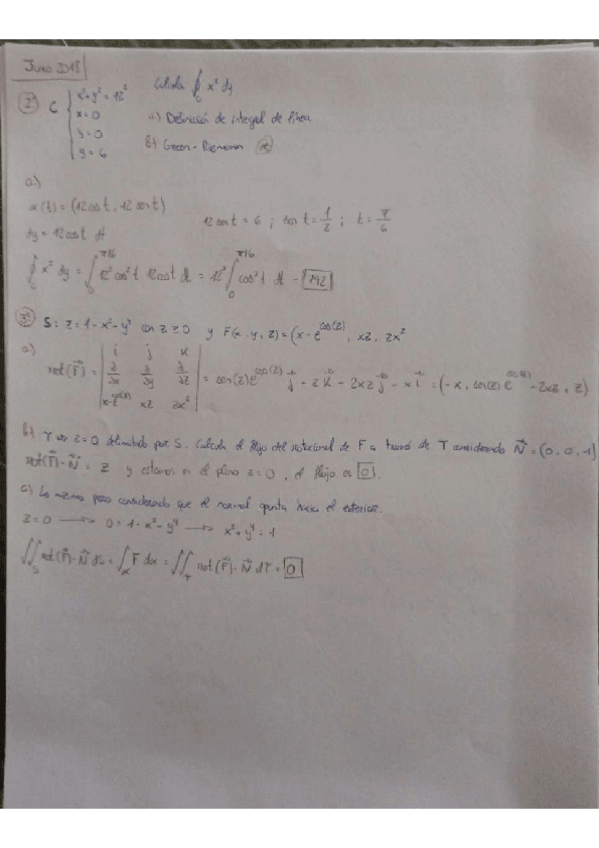 Junio 2018
2) C { x²+y²=12² Calcula ∮_C x² dy
x=0 a) Definición de integral de línea
y=0 b) Green-Riemann
y=6
a)
α(t)=(12cos t, 12sen t) 12sen t=6; sen t=1/2; t=π/6
dy=12cos t dt
∮_C x² dy = ∫_0^{π/6} 12² cos² t 12cos t dt = 12³ ∫_0^{π/6} cos³ t dt = 792
3) S: z=1-x²-y⁴ con z≥0 y F(x,y,z)=(x-e^{cos(z)}, xz, zx²
a)
rot(F)= | i j k
∂/∂x ∂/∂y ∂/∂z | = sen(z)e^{cos(z)} j + z k - 2xz j - x i = (-x, sen(z)e^{cos(z)} - 2xz, z)
x-e^{cos(z)} xz zx²
b) T z=0 delimitado por S. Calcula el flujo del rotacional de F a través de T considerando N=(0,0,1)
rot(F)·N = z y estamos en el plano z=0, el flujo es 0.
c) Lo mismo pero considerando que el normal apunta hacia el exterior.
z=0 → 0=1-x²-y⁴ → x²+y⁴=1
∬_S rot(F)·N ds = ∫_α F dα = ∬_T rot(F)·N dT = 0